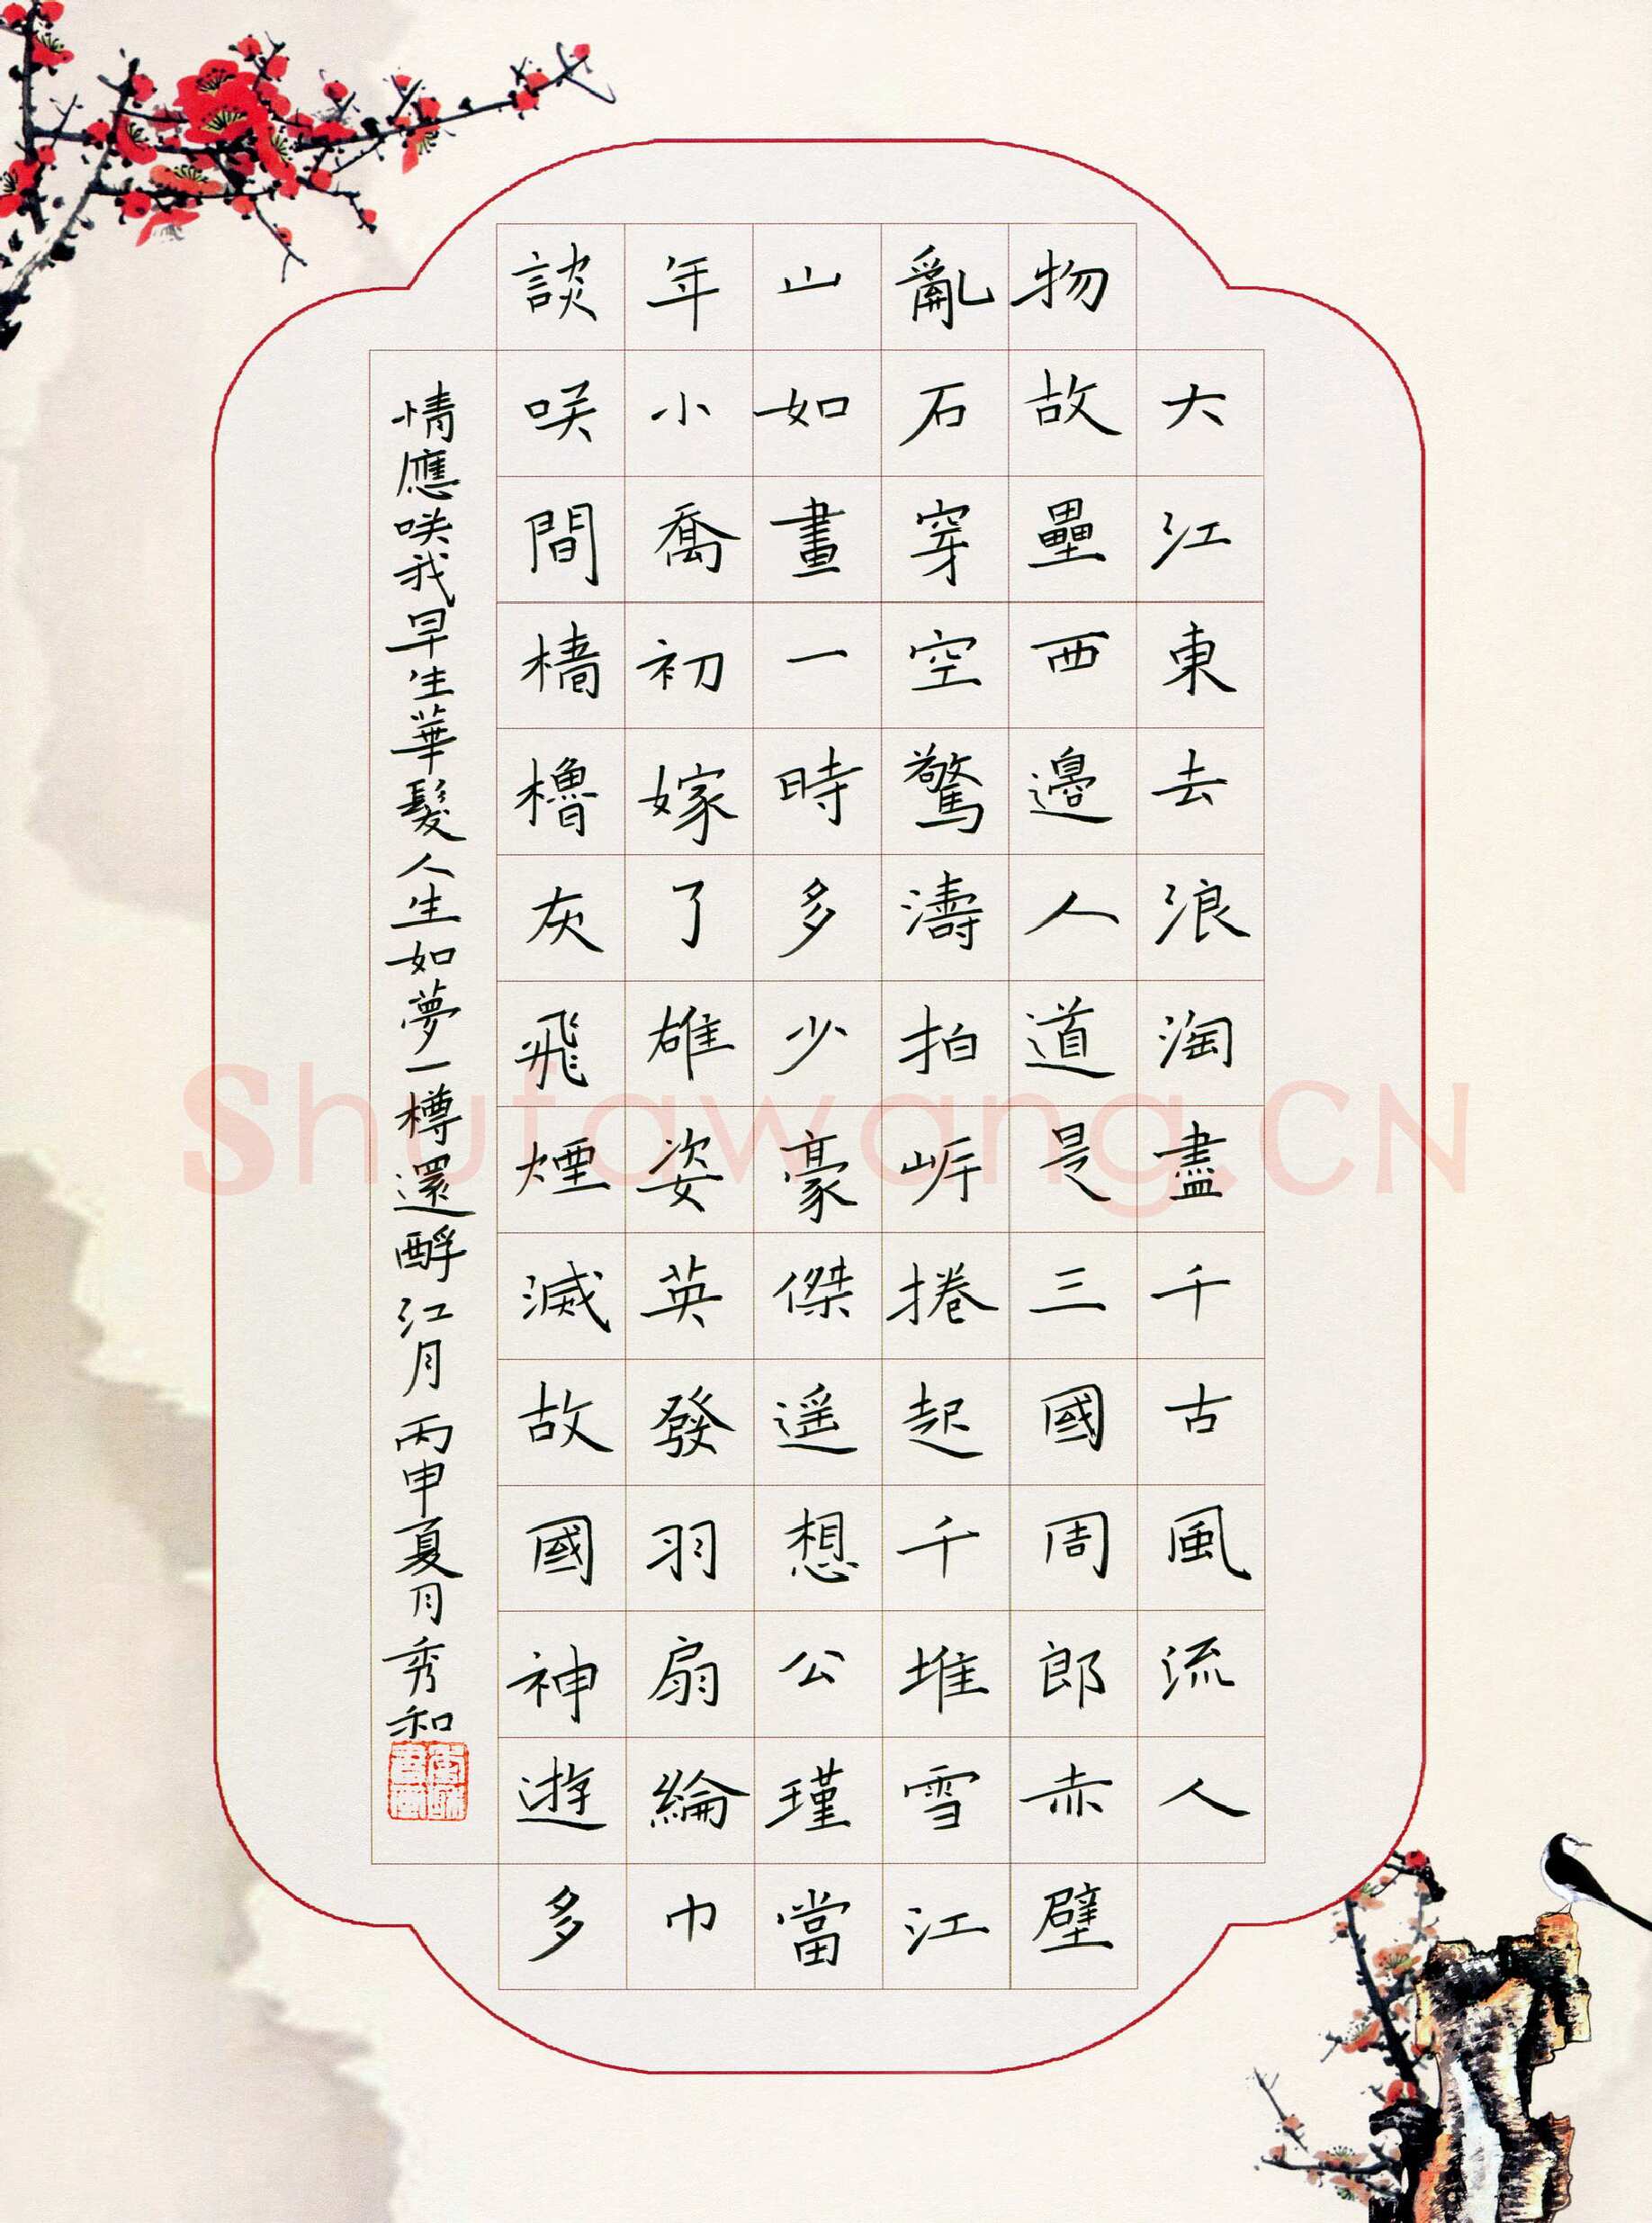 大江東去浪淘盡千古風流人
物故壘西邊人道是三國周郎赤壁
亂石穿空驚濤拍岸捲起千堆雪江
山如畫一時多少豪傑遥想公瑾當
年小喬初嫁了雄姿英發羽扇綸巾
談咲間檣櫓灰飛煙滅故國神遊多
情應咲我早生華髮人生如夢一樽還酹江月丙申夏月秀和
Shufawang.CN